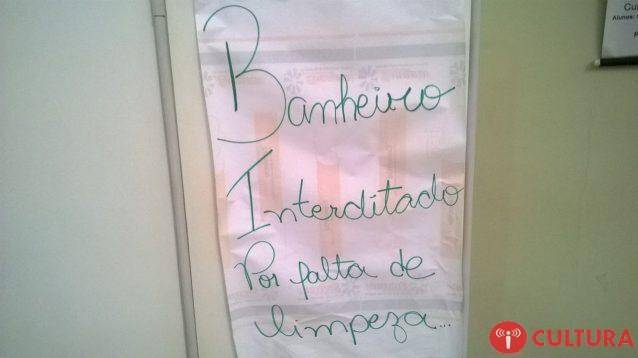 Cu
Alunos:
Banheiro
Interditado
Por falta de
limpeza...
CULTURA